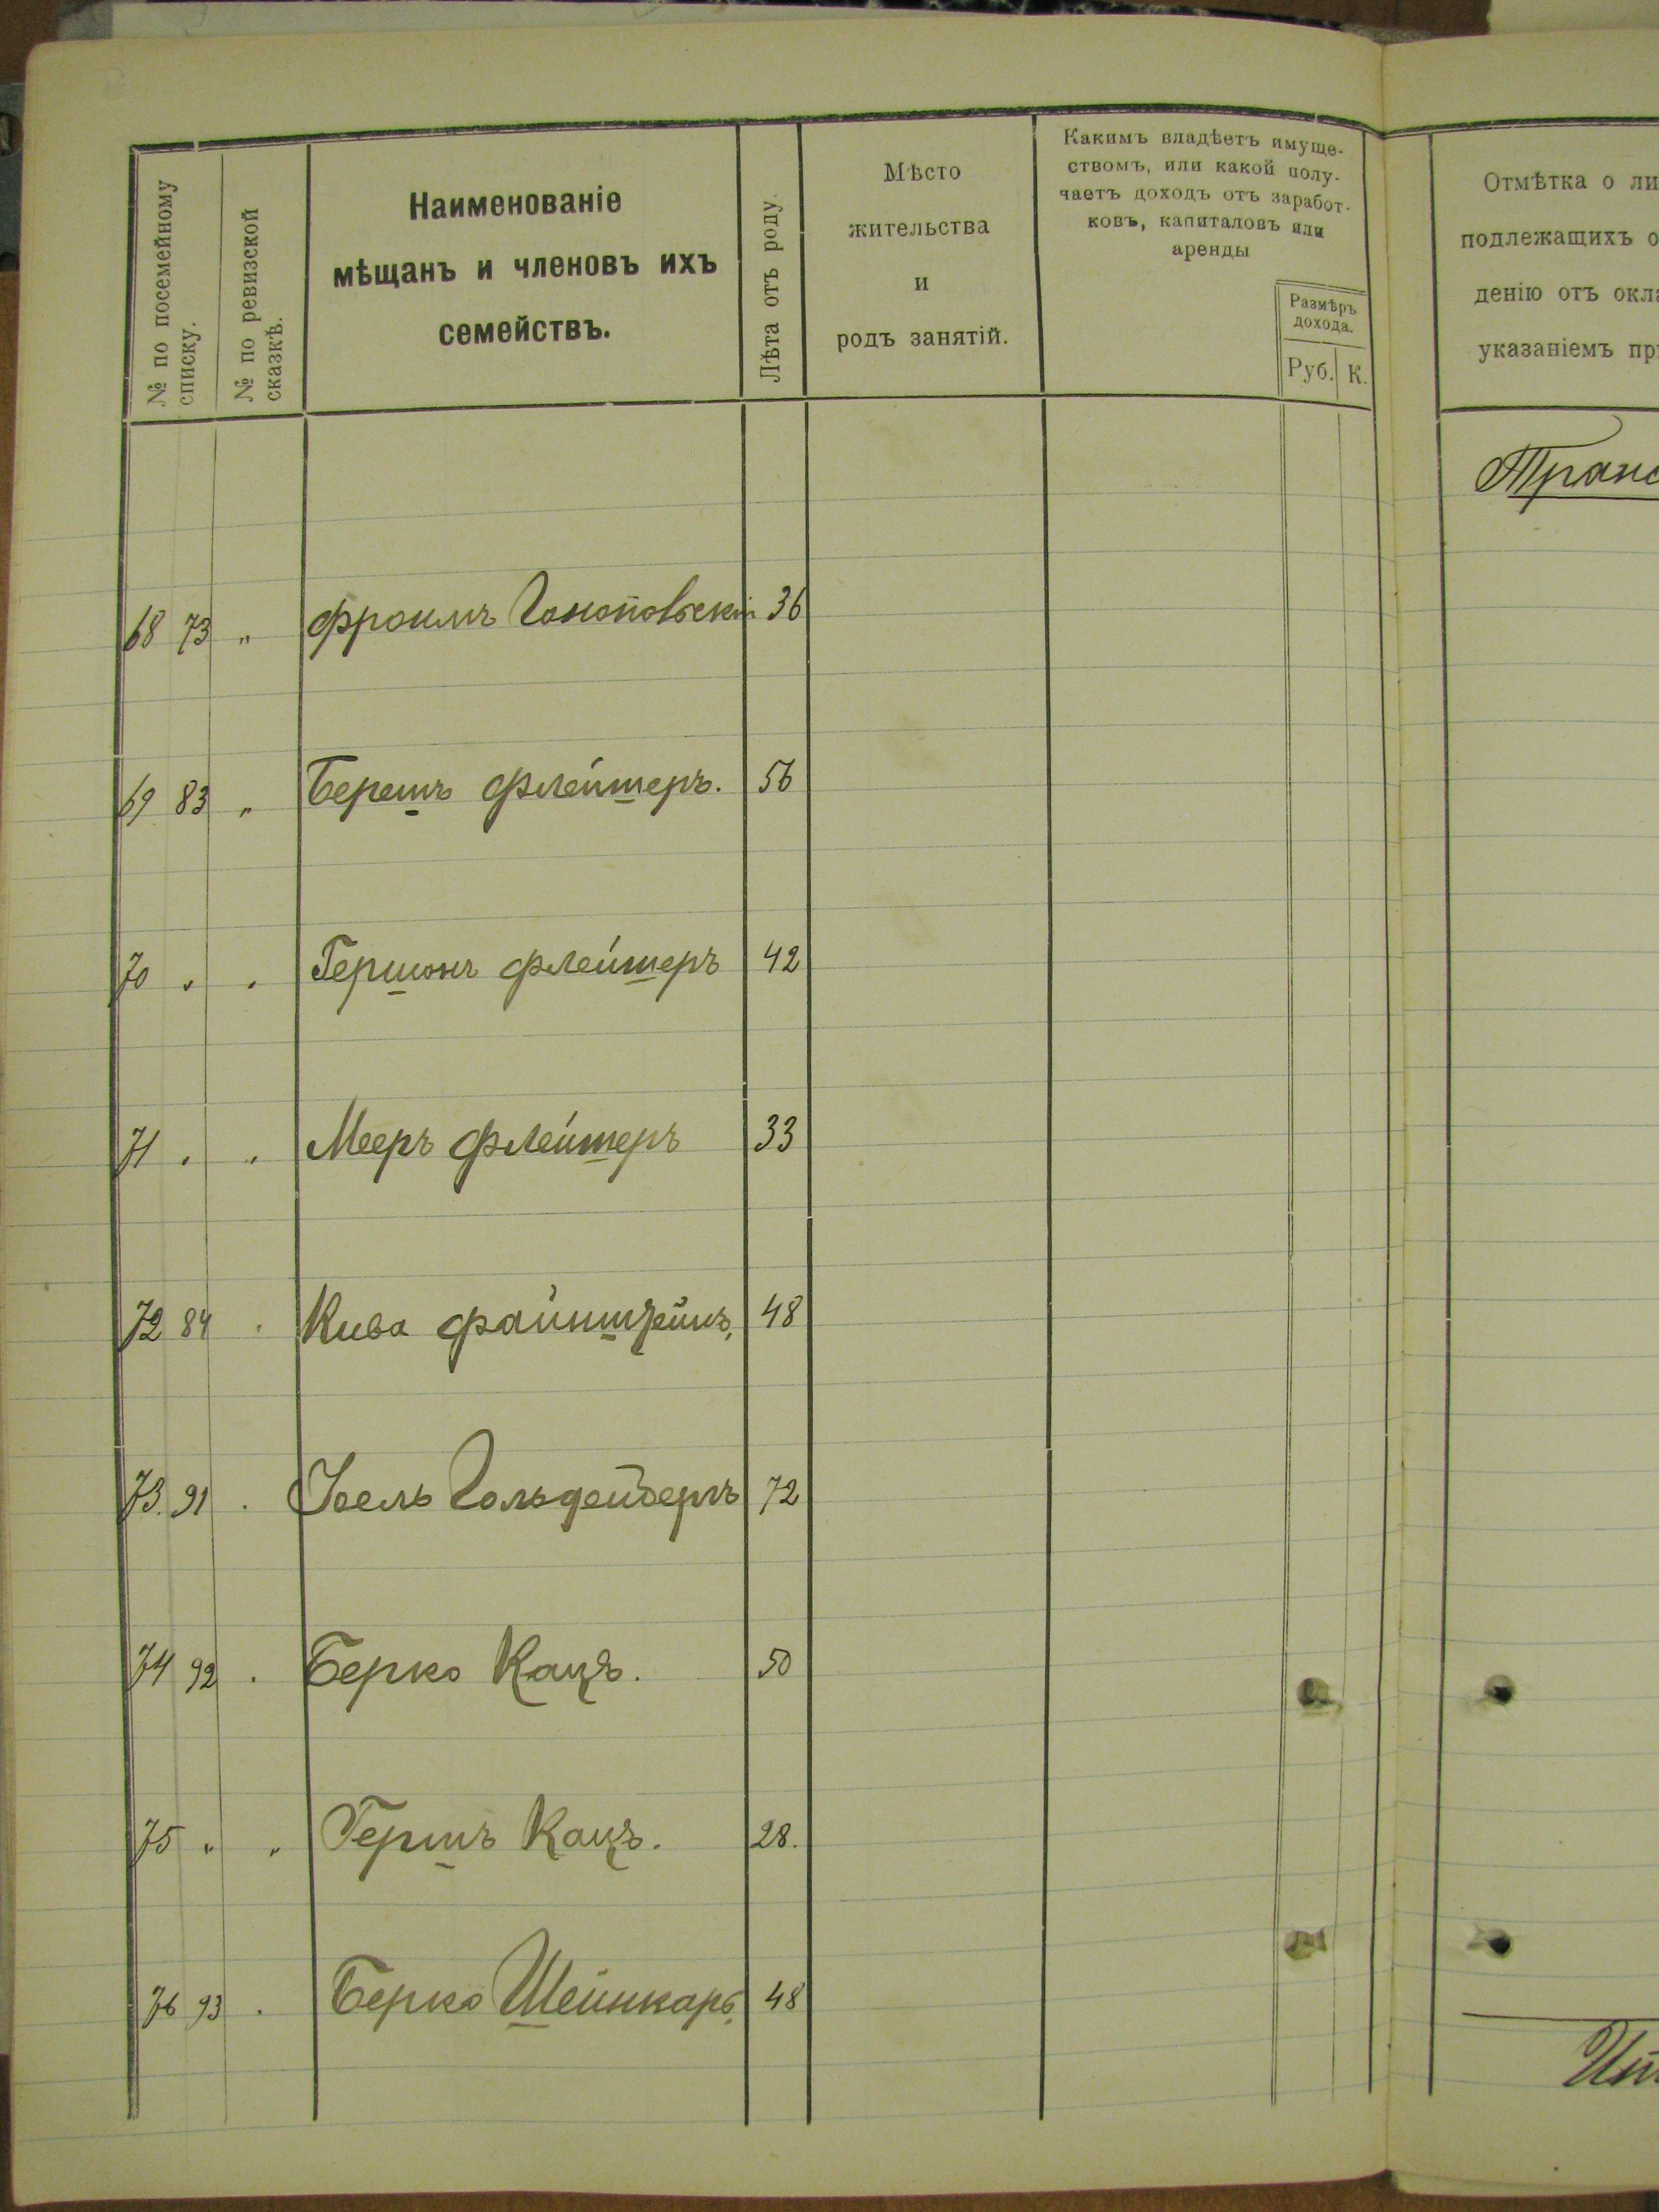 № по посемейному
списку.
№ по ревизской
сказкѣ.
Наименованіе
мѣщанъ и членовъ ихъ
семействъ.
Лѣта отъ роду.
Мѣсто
жительства
и
родъ занятій.
Какимъ владѣетъ имуще-
ствомъ, или какой полу-
чаетъ доходъ отъ заработ-
ковъ, капиталовъ или
аренды
Размѣръ
дохода.
Руб. К.
Отмѣтка о ли
подлежащихъ о
денію отъ окла
указаніемъ пр
Транс
68 73 „ Фроимъ 36
69 83 „ Берешъ Флейшеръ. 56
70 „ „ Гершонъ Флейшеръ 42
71 „ „ Мееръ Флейшеръ 33
72 84 „ Кива Файнштейнъ, 48
73. 91 „ Іоель Гольденбергъ 72
74 92 „ Берко Кацъ. 50
75 „ „ Гершъ Кацъ. 28.
76 93 „ Берко Шейнкаръ, 48
Ит